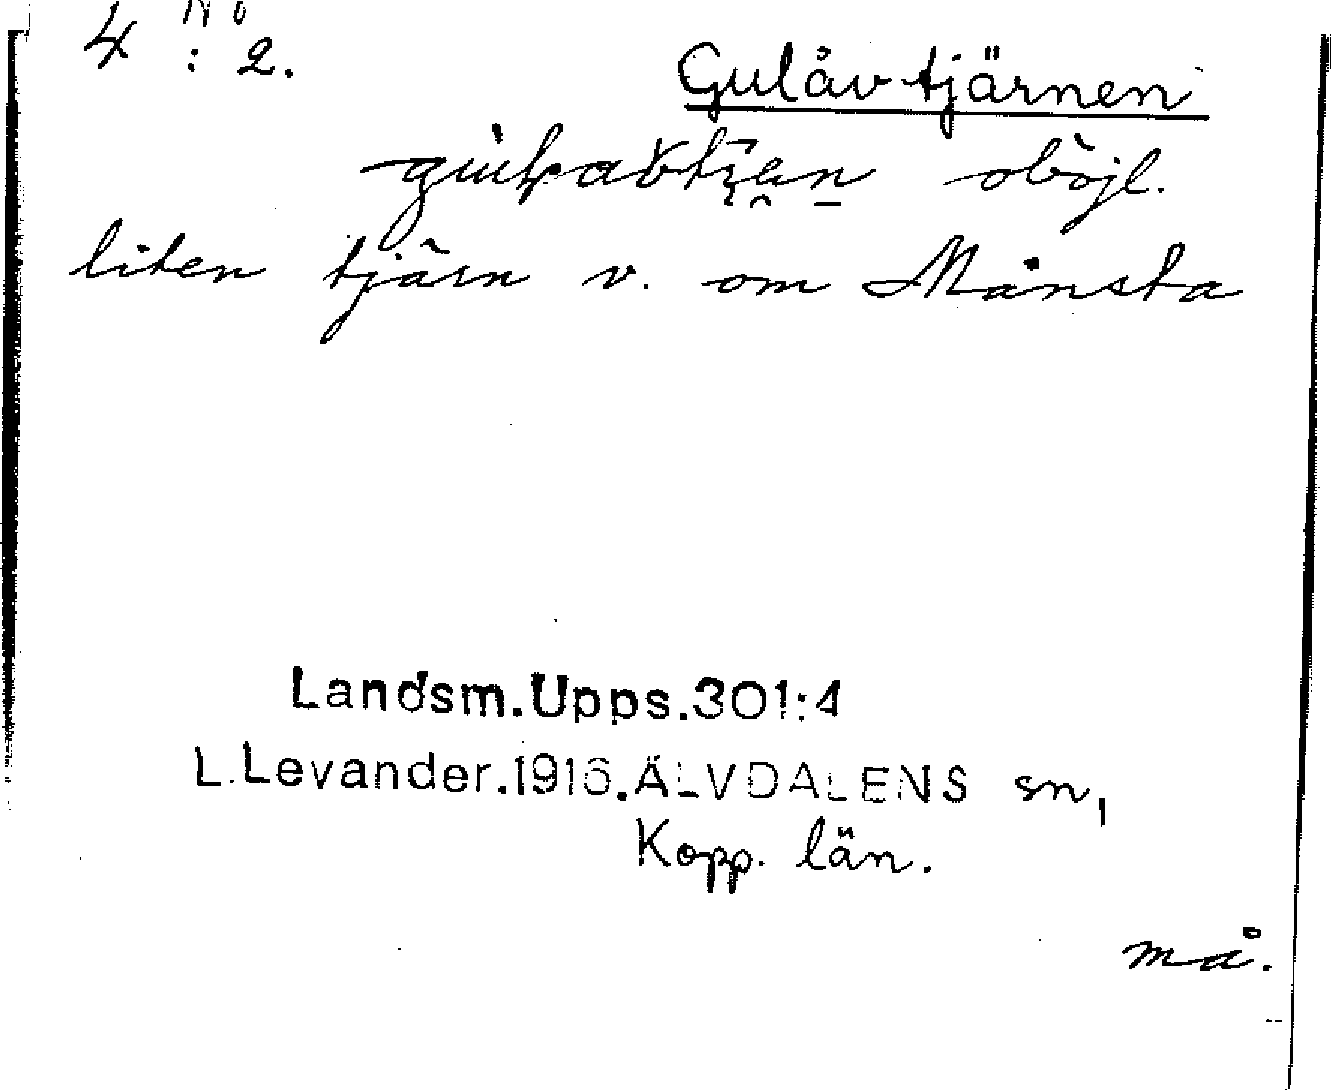 4 : 2.
Gulåvtjärnen
oböjl.
liten tjärn v. om Månsta
Landsm.Upps.301:4
L.Levander.1916.ÄLVDALENS sn,
Kopp. län.
må.